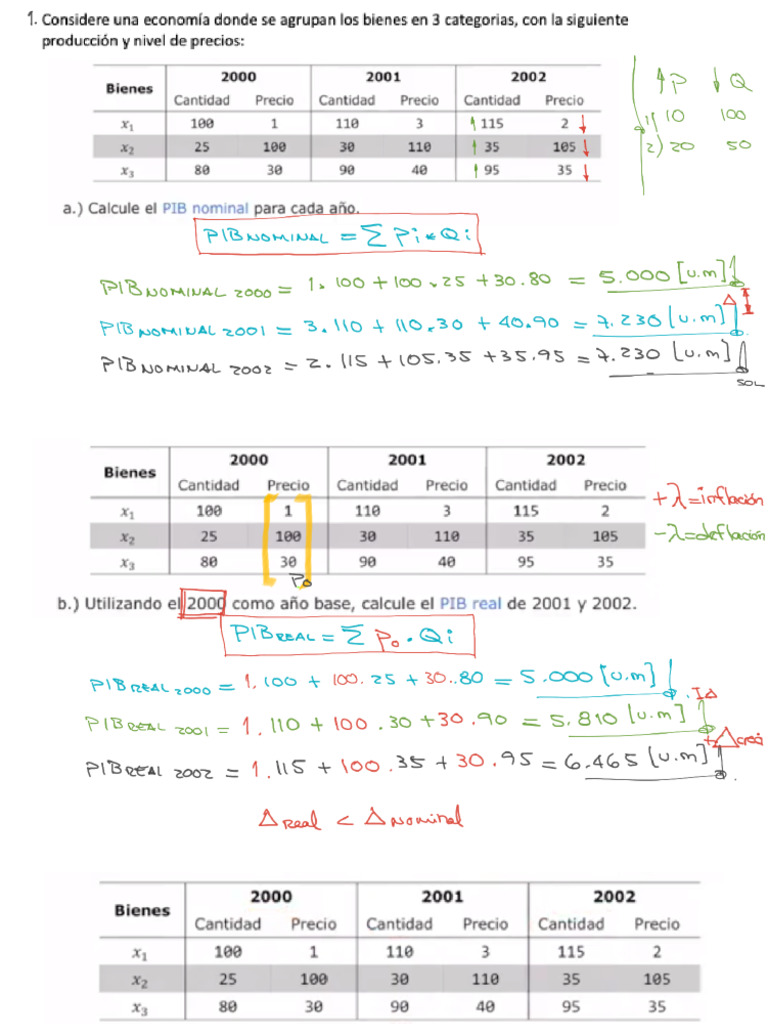 1. Considere una economía donde se agrupan los bienes en 3 categorias, con la siguiente
producción y nivel de precios:
Bienes 2000 2001 2002
Cantidad Precio Cantidad Precio Cantidad Precio
x₁ 100 1 110 3 ↑ 115 2 ↓
x₂ 25 100 30 110 ↑ 35 105 ↓
x₃ 80 30 90 40 ↑ 95 35 ↓
↑P ↓Q
1) 10 100
2) 20 50
a.) Calcule el PIB nominal para cada año.
PIB NOMINAL = Σ Pi * Qi
PIB NOMINAL 2000 = 1.100 + 100.25 + 30.80 = 5.000 [u.m]
Δ
PIB NOMINAL 2001 = 3.110 + 110.30 + 40.90 = 7.230 [u.m]
PIB NOMINAL 2002 = 2.115 + 105.35 + 35.95 = 7.230 [u.m]
SOL
Bienes 2000 2001 2002
Cantidad Precio Cantidad Precio Cantidad Precio
x₁ 100 1 110 3 115 2
x₂ 25 100 30 110 35 105
x₃ 80 30 90 40 95 35
P₀
+λ=inflación
-λ=deflación
b.) Utilizando el 2000 como año base, calcule el PIB real de 2001 y 2002.
PIB REAL = Σ P₀ . Qi
PIB REAL 2000 = 1.100 + 100.25 + 30..80 = 5.000 [u.m]
PIB REAL 2001 = 1.110 + 100.30 + 30.90 = 5.810 [u.m]
PIB REAL 2002 = 1.115 + 100.35 + 30.95 = 6.465 [u.m]
Δ Real < Δ Nominal
Bienes 2000 2001 2002
Cantidad Precio Cantidad Precio Cantidad Precio
x₁ 100 1 110 3 115 2
x₂ 25 100 30 110 35 105
x₃ 80 30 90 40 95 35